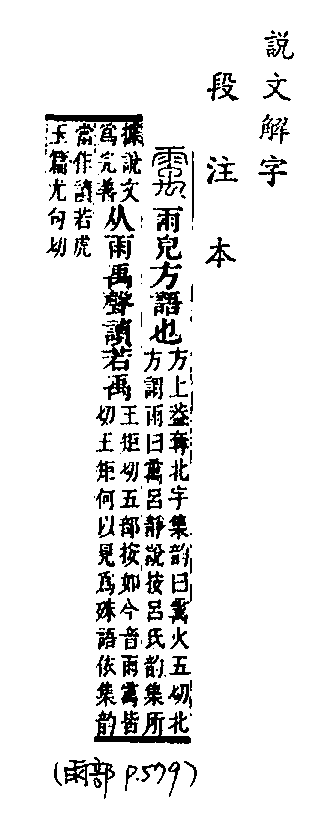 說文解字
段注本
䨞雨皃方語也方上葢奪北字集韵曰䨞火五切北
方謂雨曰䨞呂靜說按呂氏韵集所
據說文
爲完善从雨禹聲讀若禹王矩切五部按如今音雨䨞皆
切王矩何以見爲殊語依集韵
當作讀若虎
玉篇尤句切
(雨部 p.579)